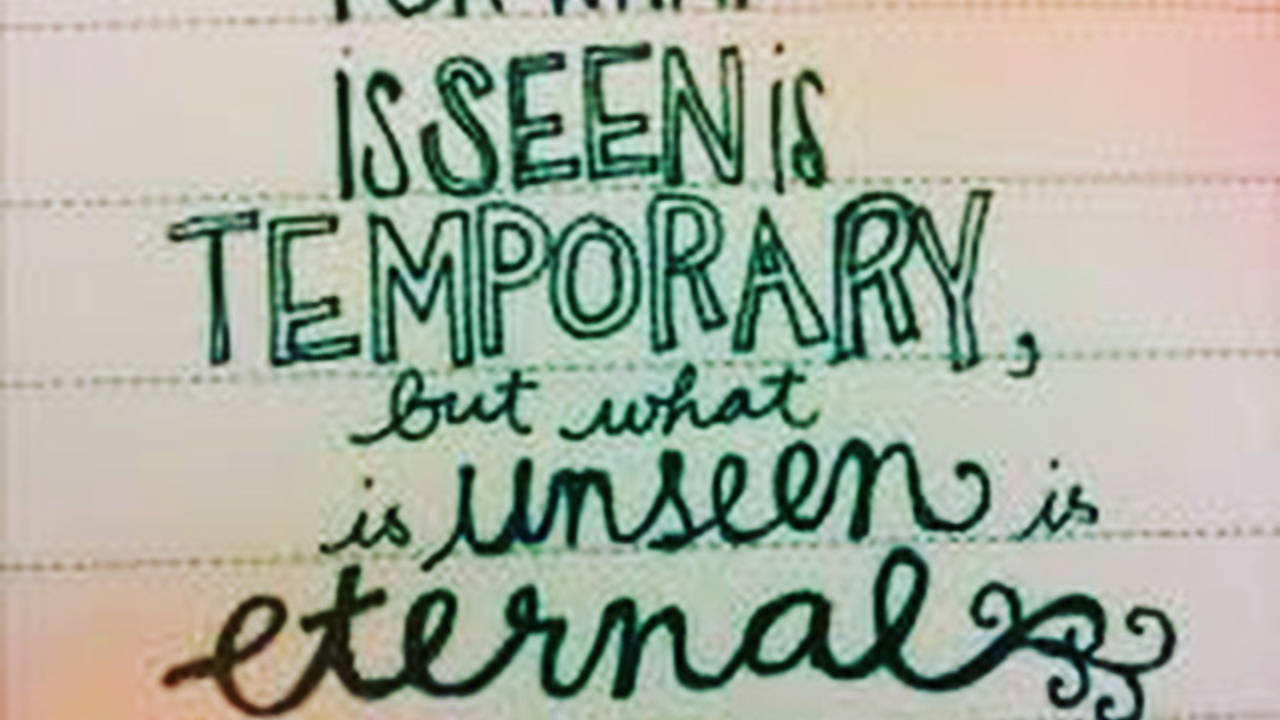 FOR WHAT
is SEEN is
TEMPORARY,
but what
is unseen is
eternal